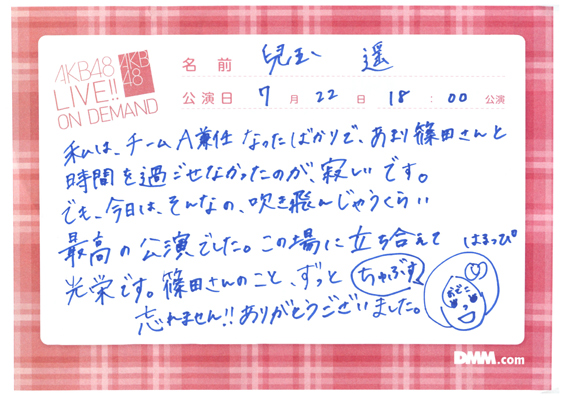 AKB48
LIVE!!
ON DEMAND
AKB
48
名前 兒玉 遥
公演日 7月22日 18:00公演
私は、チームA兼任なったばかりで、あまり篠田さんと
時間を過ごせなかったのが、寂しいです。
でも、今日は、そんなの、吹き飛んじゃうくらい
最高の公演でした。この場に立ち合えて
はるっぴ
光栄です。篠田さんのこと、ずっと
ちゃぶす
おでこ
忘れません!!ありがとうございました。
DMM.com